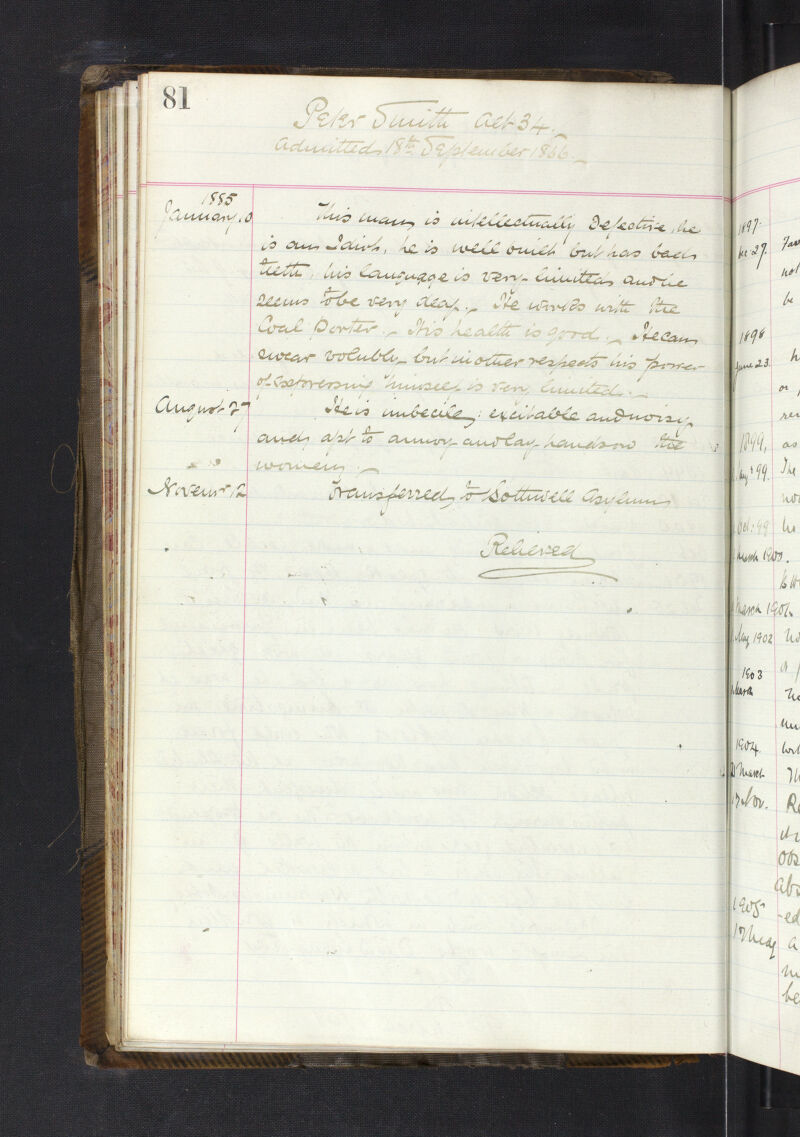 81
Peter Smith Aet 34.
Admitted 18th September 1866.
1885
January 10 This man is intellectually Defective, he
is an Idiot, he is well but has bad
teeth, his language is very limited and he
seems to be very deaf. He works with the
Coal Porter. His health is good. He can
swear volubly but in other respects his power
of expressing himself is very limited.
August 27 He is imbecile, excitable and noisy
and apt to annoy and lay hands on the
women.
Novemr 12 Transferred to Bothwell Asylum
Relieved
1897
27.
1898
June 23.
1899.
99.
Oct: 99
March 1900.
March 1901
May 1902
1903
March
1904
March
17 Nov.
1905
17 May